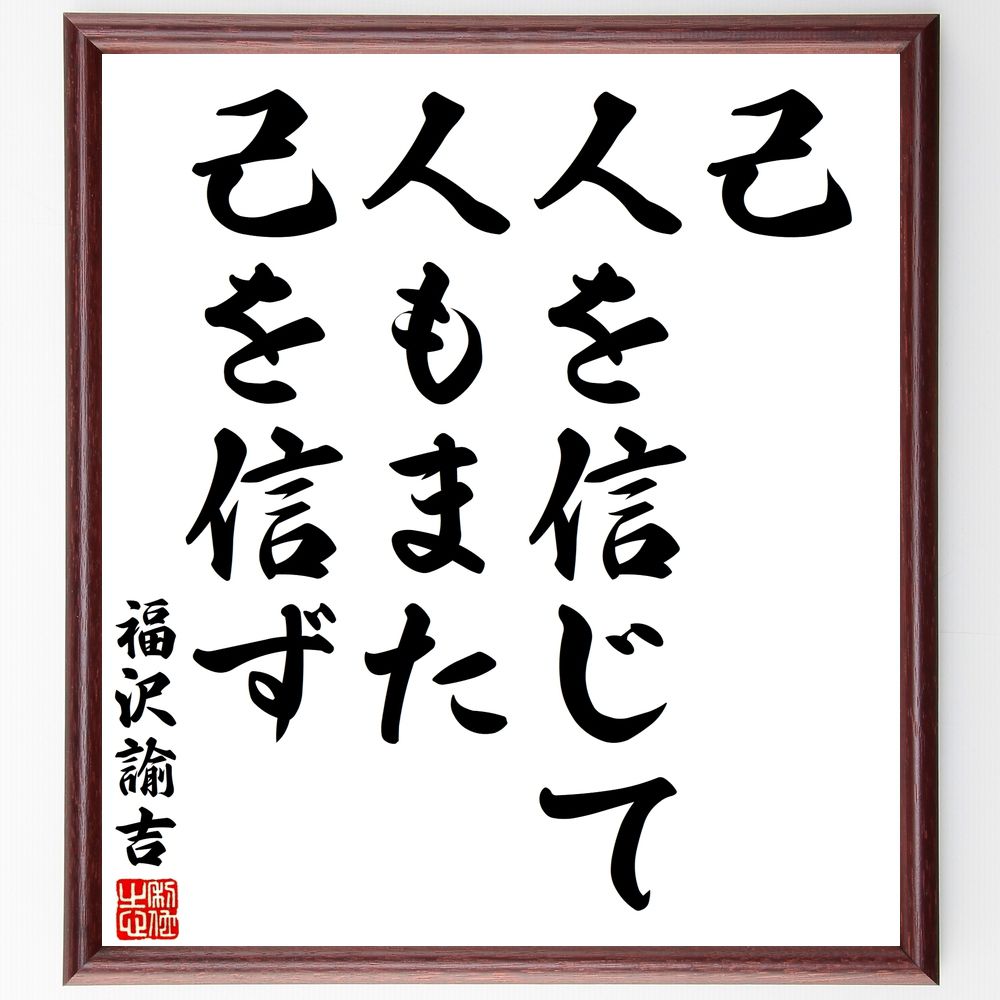 己
人を信じて
人もまた
己を信ず
福沢諭吉